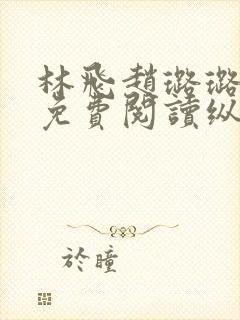 林飛趙璐璐
免費閱讀纵
於瞳